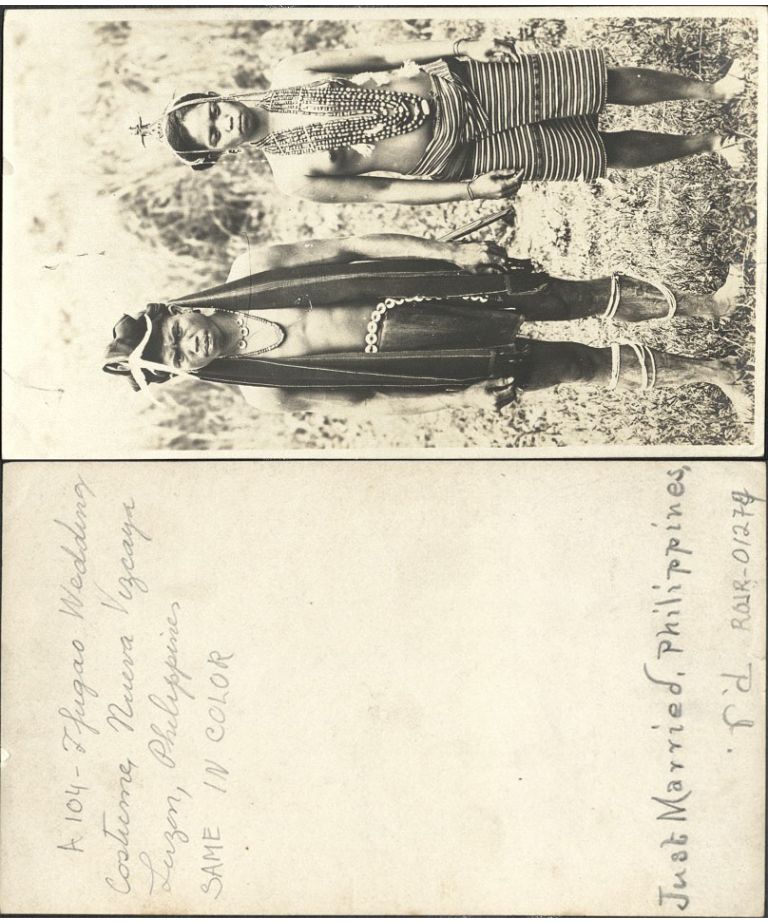 A 104 - Ifugao Wedding
Costume, Nueva Vizcaya
Luzon, Philippines
SAME IN COLOR
Just Married, Philippines,
r'd ROJR-01279